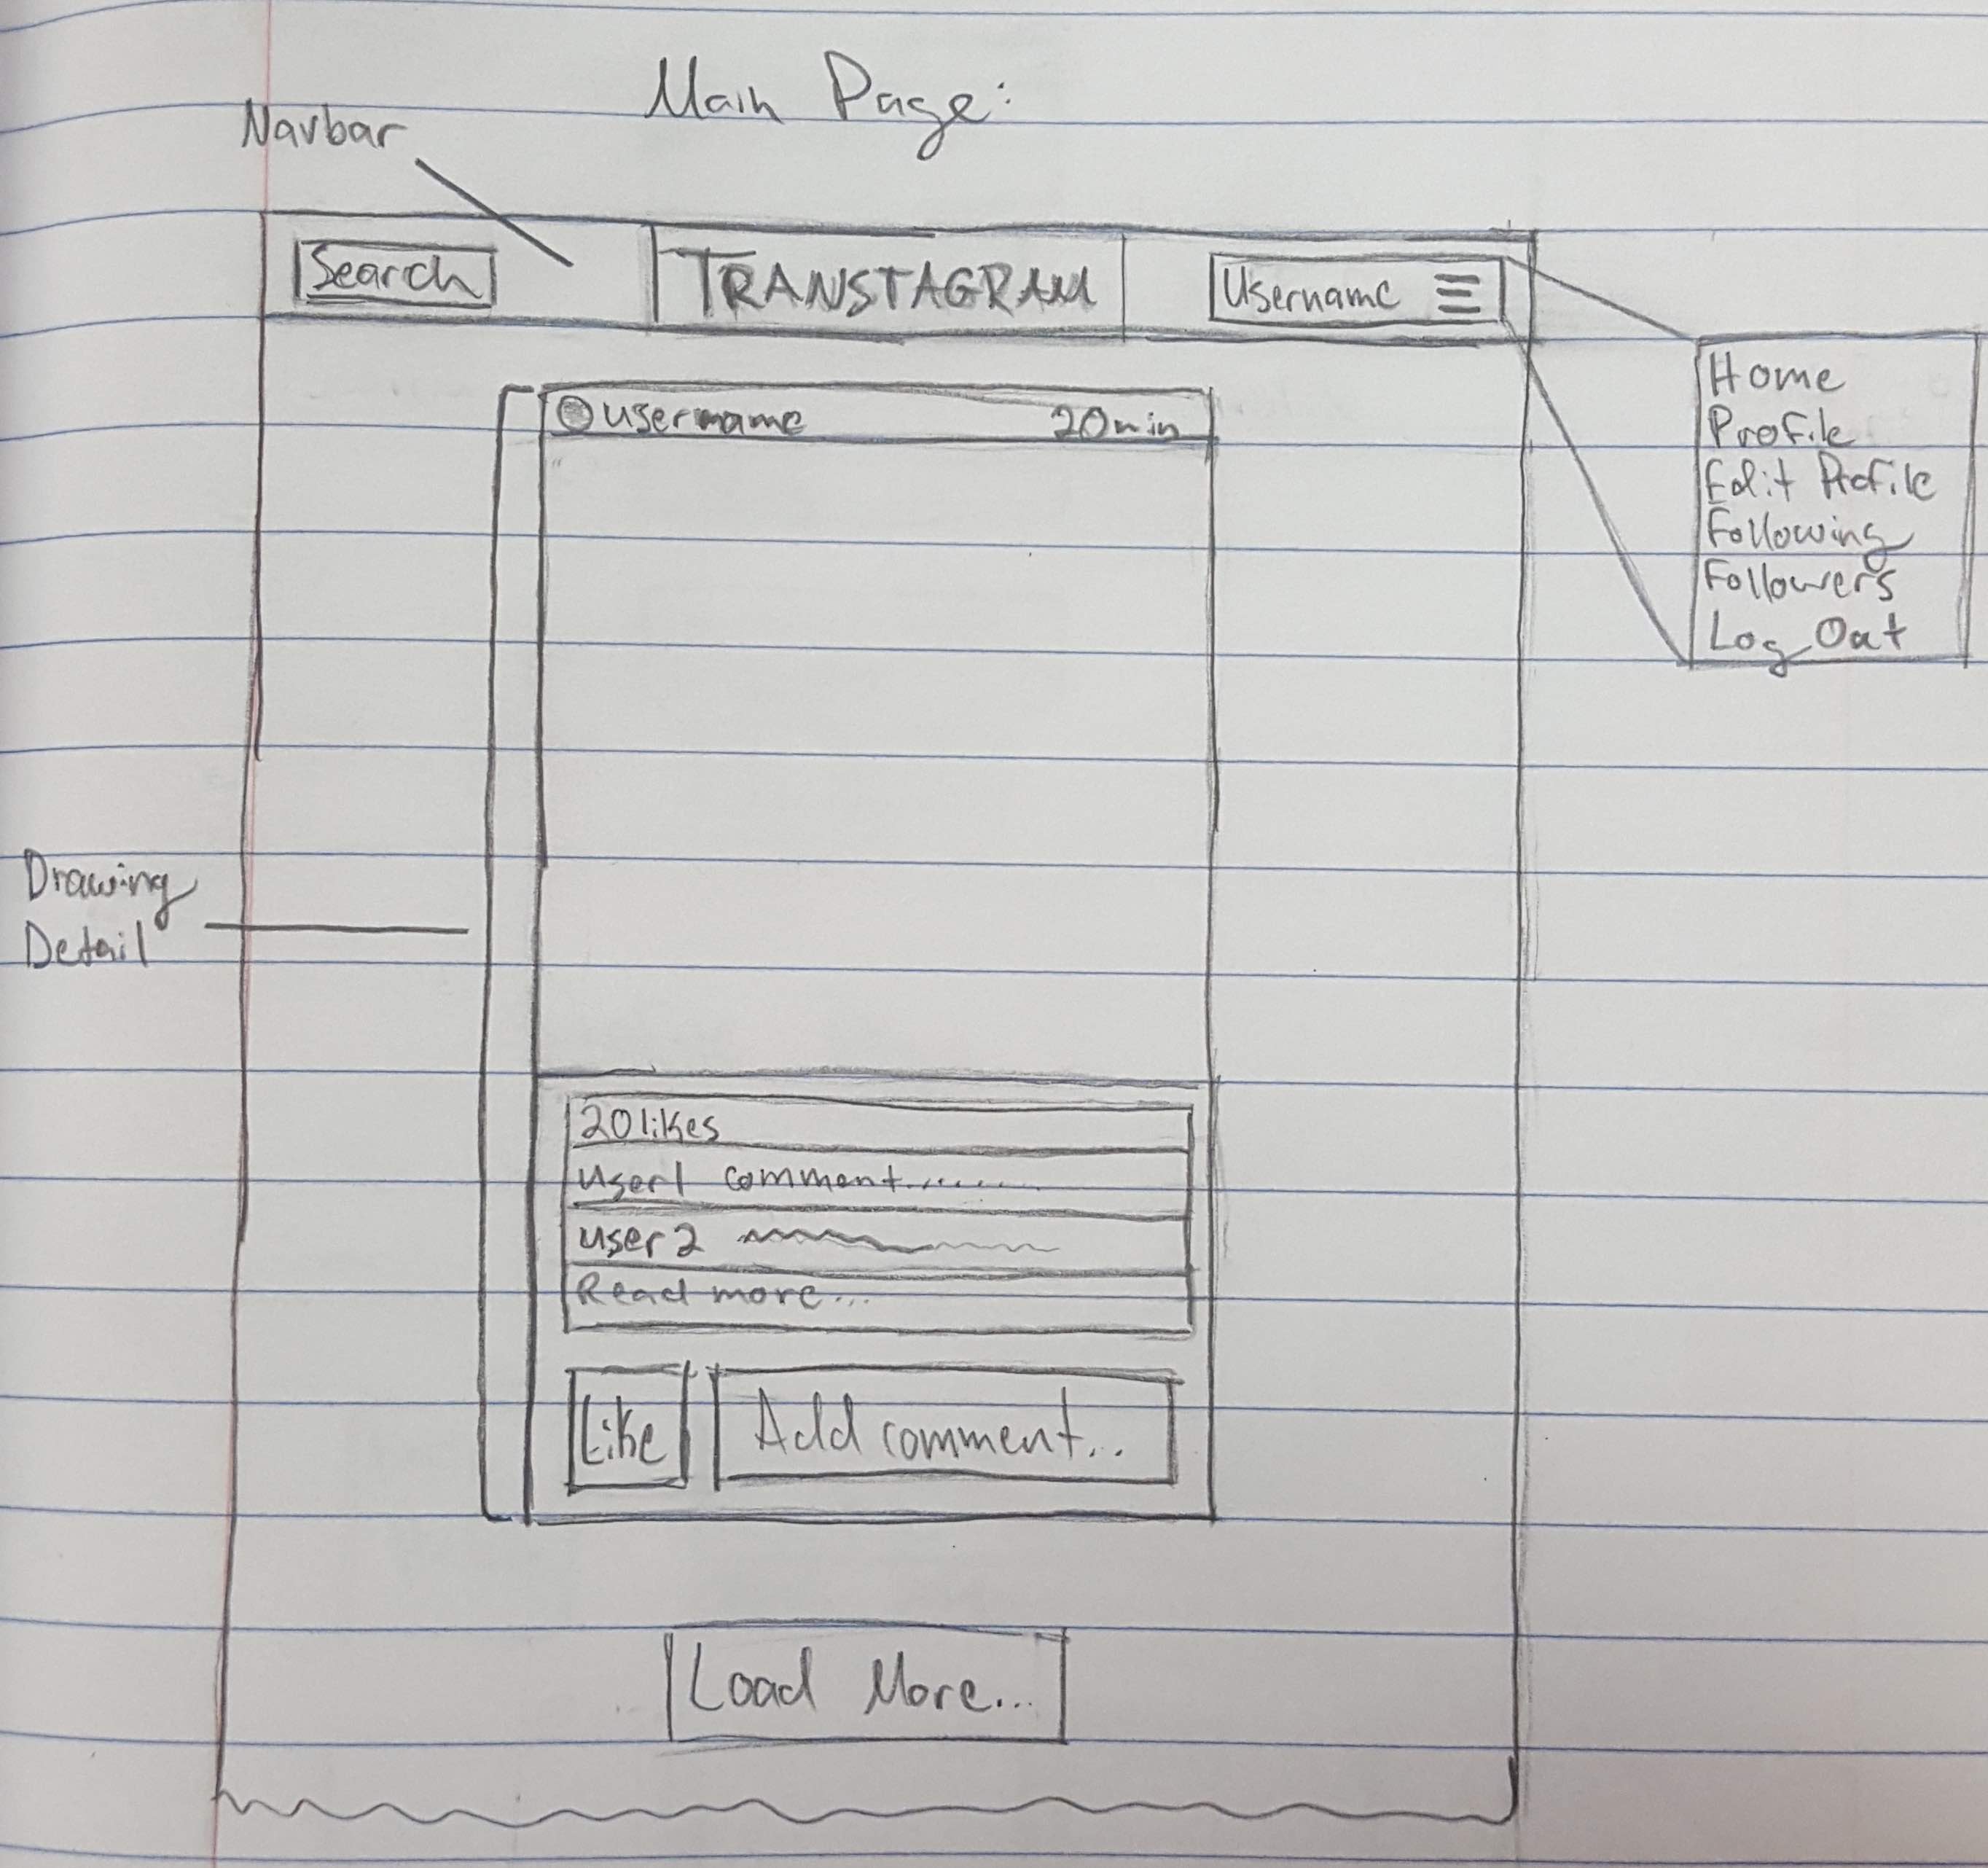 Main Page:
Navbar
Search
TRANSTAGRAM
Username
Home
Profile
Edit Profile
Following
Followers
Log Out
username 20min
Drawing
Detail
20 likes
user1 comment........
user2
Read more...
Like
Add comment...
Load More...